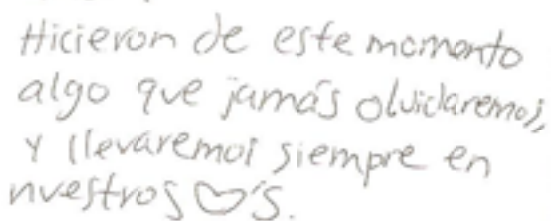 Hicieron de este momento
algo que jamás olvidaremos,
y llevaremos siempre en
nuestros ♡'s.